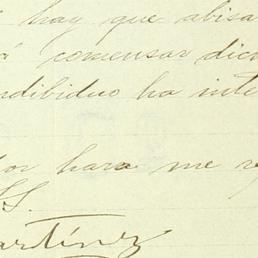 hay que abisa
á comensar dic
ndibiduo ha inte
or hara me re
SS.
artínez